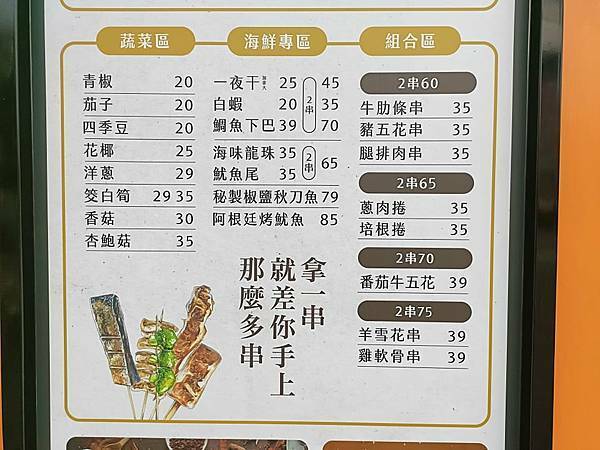 蔬菜區
青椒 20
茄子 20
四季豆 20
花椰 25
洋蔥 29
筊白筍 29 35
香菇 30
杏鮑菇 35
海鮮專區
一夜干 25 2串 45
白蝦 20 35
鯛魚下巴 39 70
海味龍珠 35 2串 65
魷魚尾 35
秘製椒鹽秋刀魚 79
阿根廷烤魷魚 85
組合區
2串60
牛肋條串 35
豬五花串 35
腿排肉串 35
2串65
蔥肉捲 35
培根捲 35
2串70
番茄牛五花 39
2串75
羊雪花串 39
雞軟骨串 39
拿一串
就差你手上
那麼多串